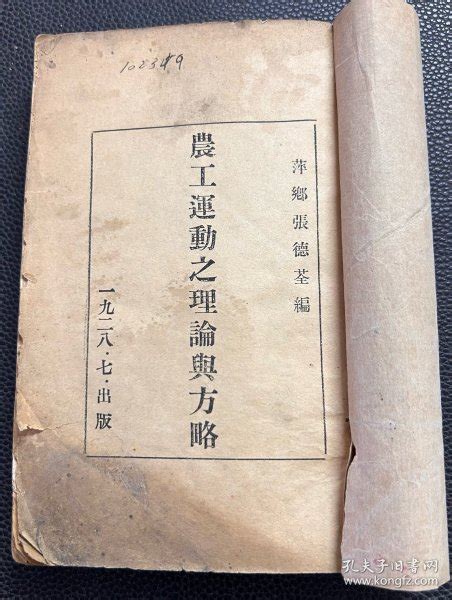 102349
萍鄉張德荃編
農工運動之理論與方略
一九二八·七·出版
孔夫子旧书网
www.kongfz.com